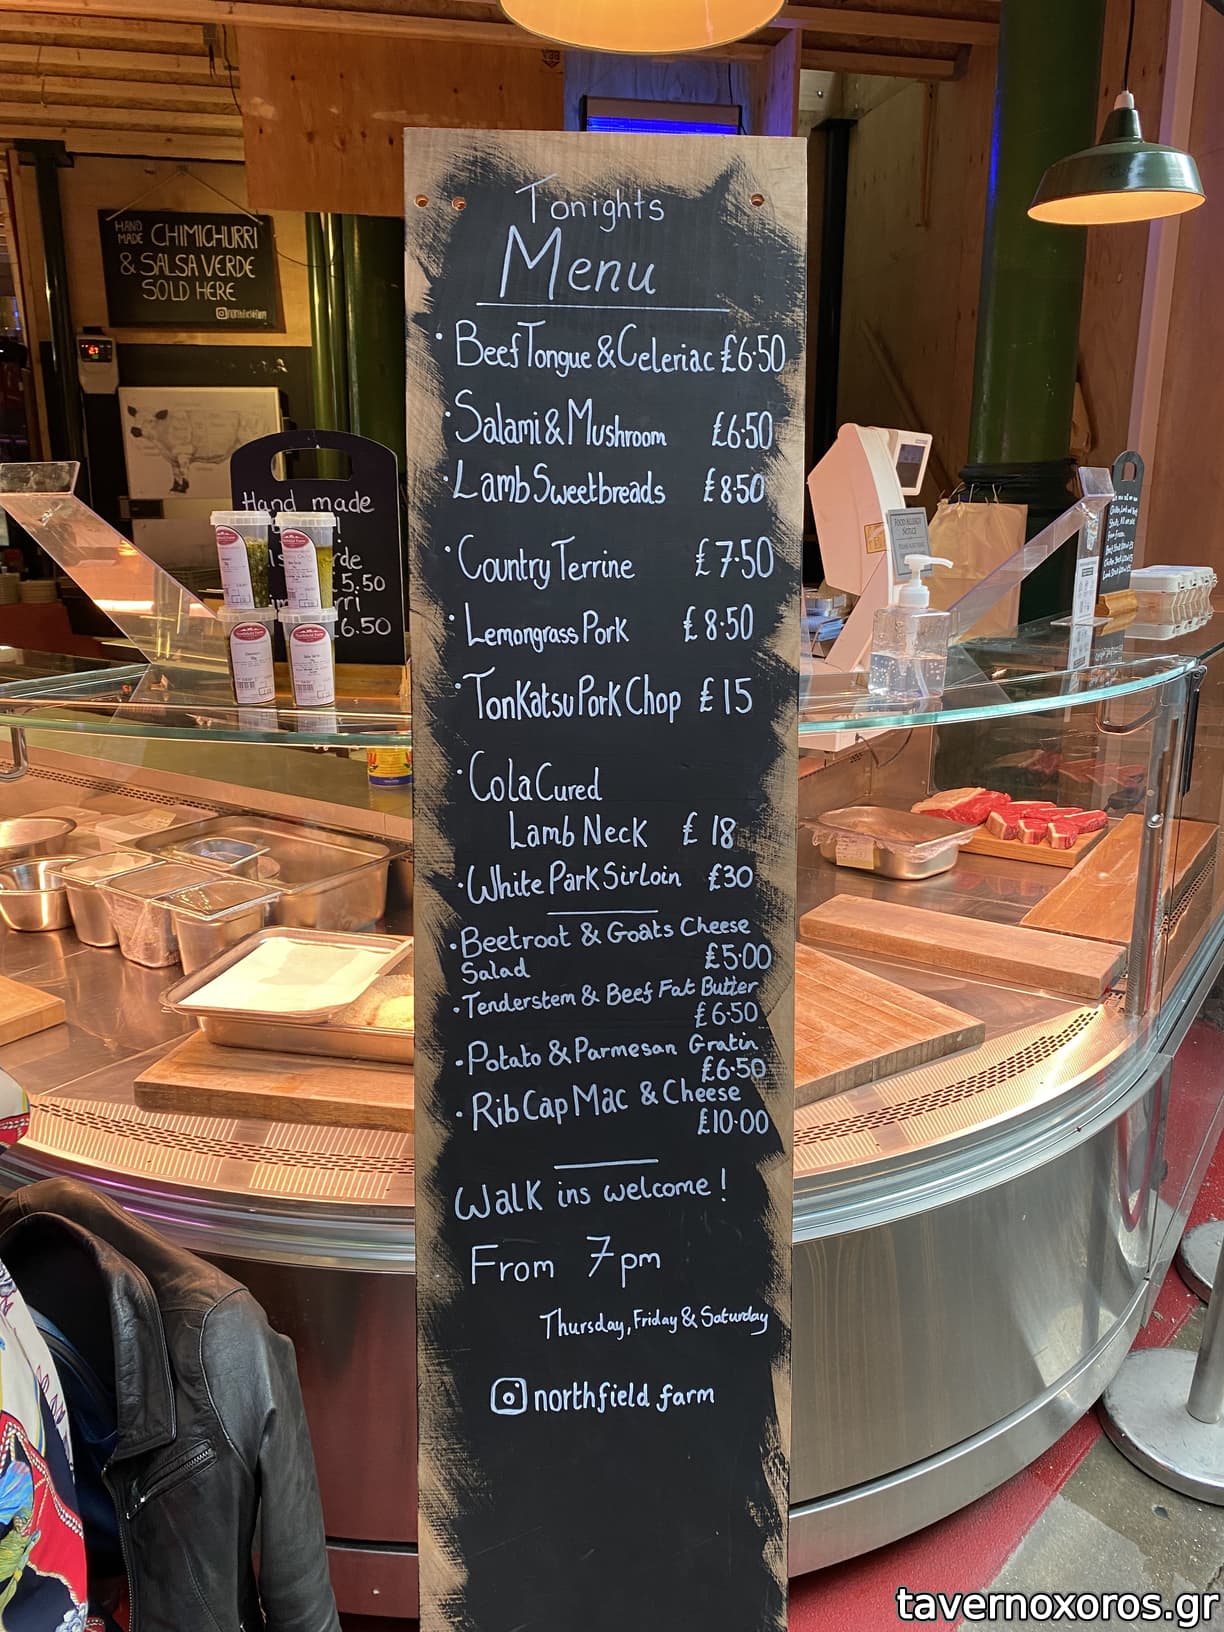 Tonights
Menu
· Beef Tongue & Celeriac £6·50
· Salami & Mushroom £6·50
· Lamb Sweetbreads £8·50
· Country Terrine £7·50
· Lemongrass Pork £8·50
· TonKatsu Pork Chop £15
· Cola Cured
Lamb Neck £18
· White Park Sirloin £30
· Beetroot & Goats Cheese
Salad £5·00
· Tenderstem & Beef Fat Butter
£6·50
· Potato & Parmesan Gratin
£6·50
· Rib Cap Mac & Cheese
£10·00
Walk ins welcome!
From 7pm
Thursday, Friday & Saturday
northfield farm
HAND MADE CHIMICHURRI
& SALSA VERDE
SOLD HERE
northfieldfarm
Hand made
rde
5.50
rri
6.50
FOOD ALLERGY
NOTICE
tavernoxoros.gr